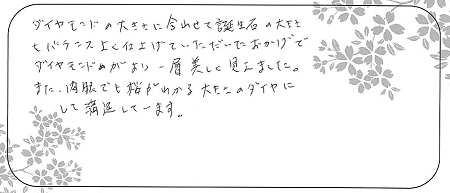 ダイヤモンドの大きさに合わせて誕生石の大きさ
もバランスよく仕上げていただいたおかげで
ダイヤモンドめがより一層美しく見えました。
また、肉眼でも桜がわかる大きさのダイヤに
して満足しています。